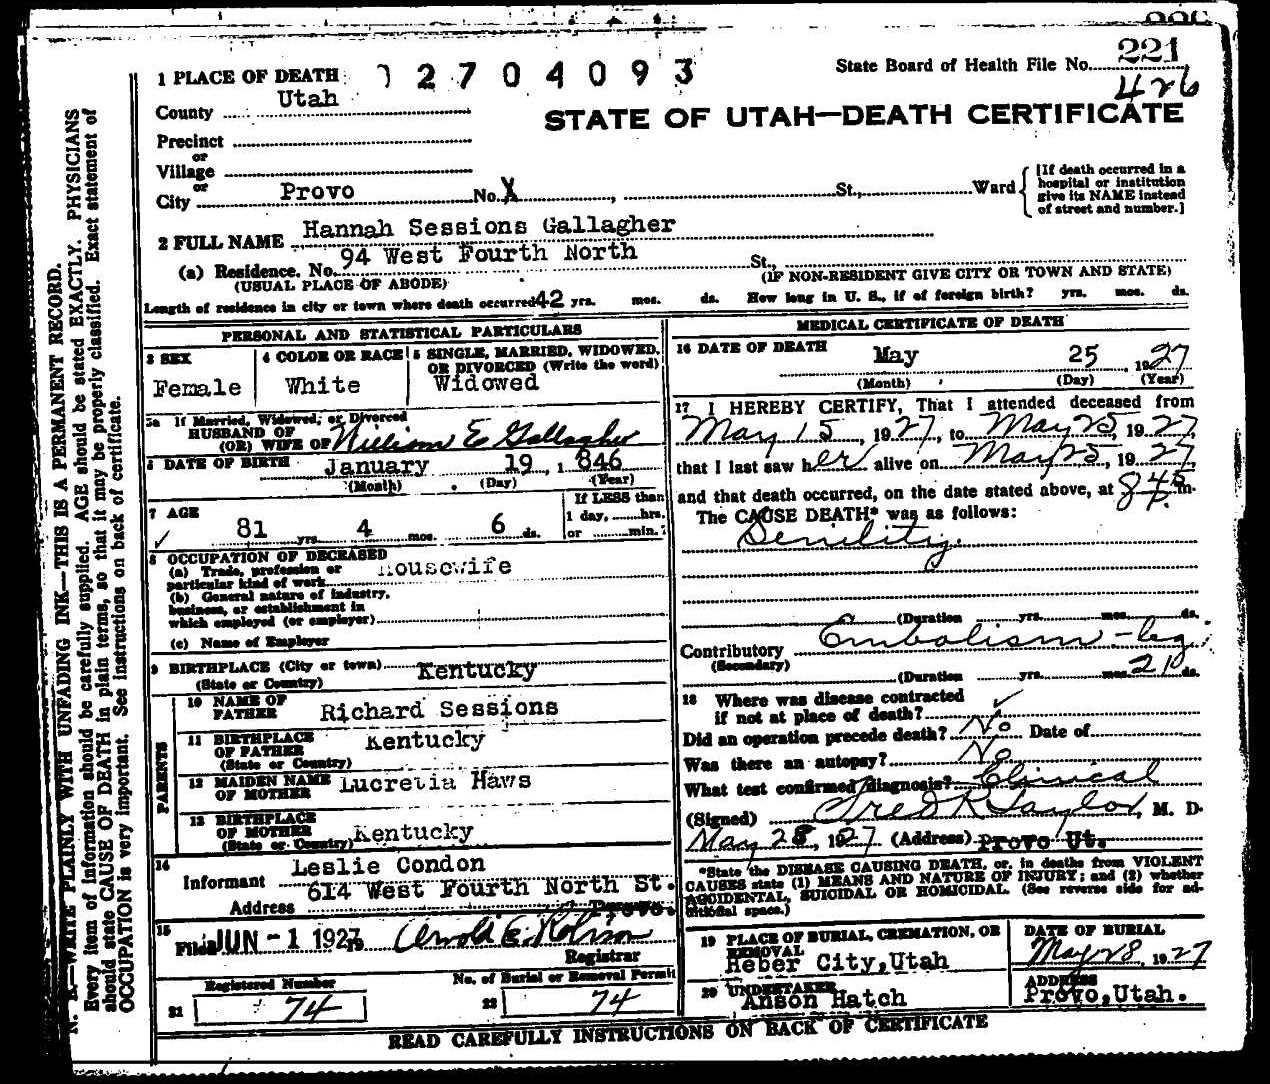 221
State Board of Health File No.
426
1 PLACE OF DEATH 2704093
County Utah
STATE OF UTAH—DEATH CERTIFICATE
Precinct
or
Village
or
City Provo No. X St., Ward
[If death occurred in a hospital or institution give its NAME instead of street and number.]
2 FULL NAME Hannah Sessions Gallagher
(a) Residence. No. 94 West Fourth North St.,
(USUAL PLACE OF ABODE) (IF NON-RESIDENT GIVE CITY OR TOWN AND STATE)
Length of residence in city or town where death occurred 42 yrs. mos. ds. How long in U. S., if of foreign birth? yrs. mos. ds.
PERSONAL AND STATISTICAL PARTICULARS
3 SEX
Female
4 COLOR OR RACE
White
5 SINGLE, MARRIED, WIDOWED, OR DIVORCED (Write the word)
Widowed
5a If Married, Widowed, or Divorced
HUSBAND OF
(OR) WIFE OF William E Gallagher
6 DATE OF BIRTH January 19, 1846
(Month) (Day) (Year)
7 AGE
81 yrs. 4 mos. 6 ds.
If LESS than
1 day, hrs.
or min.
8 OCCUPATION OF DECEASED
(a) Trade, profession or
particular kind of work Housewife
(b) General nature of industry,
business, or establishment in
which employed (or employer)
(c) Name of Employer
9 BIRTHPLACE (City or town) Kentucky
(State or Country)
PARENTS
10 NAME OF
FATHER Richard Sessions
11 BIRTHPLACE
OF FATHER Kentucky
(State or Country)
12 MAIDEN NAME
OF MOTHER Lucretia Haws
13 BIRTHPLACE
OF MOTHER
(State or Country) Kentucky
14
Informant Leslie Condon
Address 614 West Fourth North St.
Provo.
15
Filed JUN -1 1927
Registrar
Registered Number
21 74
No. of Burial or Removal Permit
22 74
MEDICAL CERTIFICATE OF DEATH
16 DATE OF DEATH May 25, 1927
(Month) (Day) (Year)
17 I HEREBY CERTIFY, That I attended deceased from
May 15, 1927, to May 25, 1927,
that I last saw her alive on May 25, 1927,
and that death occurred, on the date stated above, at 8 45 P. m.
The CAUSE DEATH* was as follows:
Senility.
(Duration yrs. mos. ds.
Contributory Embolism - leg
(Secondary)
(Duration yrs. mos. 21 ds.
18 Where was disease contracted
if not at place of death?
Did an operation precede death? No Date of
Was there an autopsy? No
What test confirmed diagnosis? Clinical
(Signed) Fred R Taylor, M. D.
May 28, 1927 (Address) Provo Ut.
*State the DISEASE CAUSING DEATH, or, in deaths from VIOLENT
CAUSES state (1) MEANS AND NATURE OF INJURY; and (2) whether
ACCIDENTAL, SUICIDAL OR HOMICIDAL. (See reverse side for ad-
ditional space.)
19 PLACE OF BURIAL, CREMATION, OR
REMOVAL
Heber City, Utah
DATE OF BURIAL
May 28, 1927
20 UNDERTAKER
Anson Hatch
ADDRESS
Provo, Utah.
READ CAREFULLY INSTRUCTIONS ON BACK OF CERTIFICATE
N. B.—WRITE PLAINLY WITH UNFADING INK—THIS IS A PERMANENT RECORD.
Every item of information should be carefully supplied. AGE should be stated EXACTLY. PHYSICIANS
should state CAUSE OF DEATH in plain terms, so that it may be properly classified. Exact statement of
OCCUPATION is very important. See instructions on back of certificate.